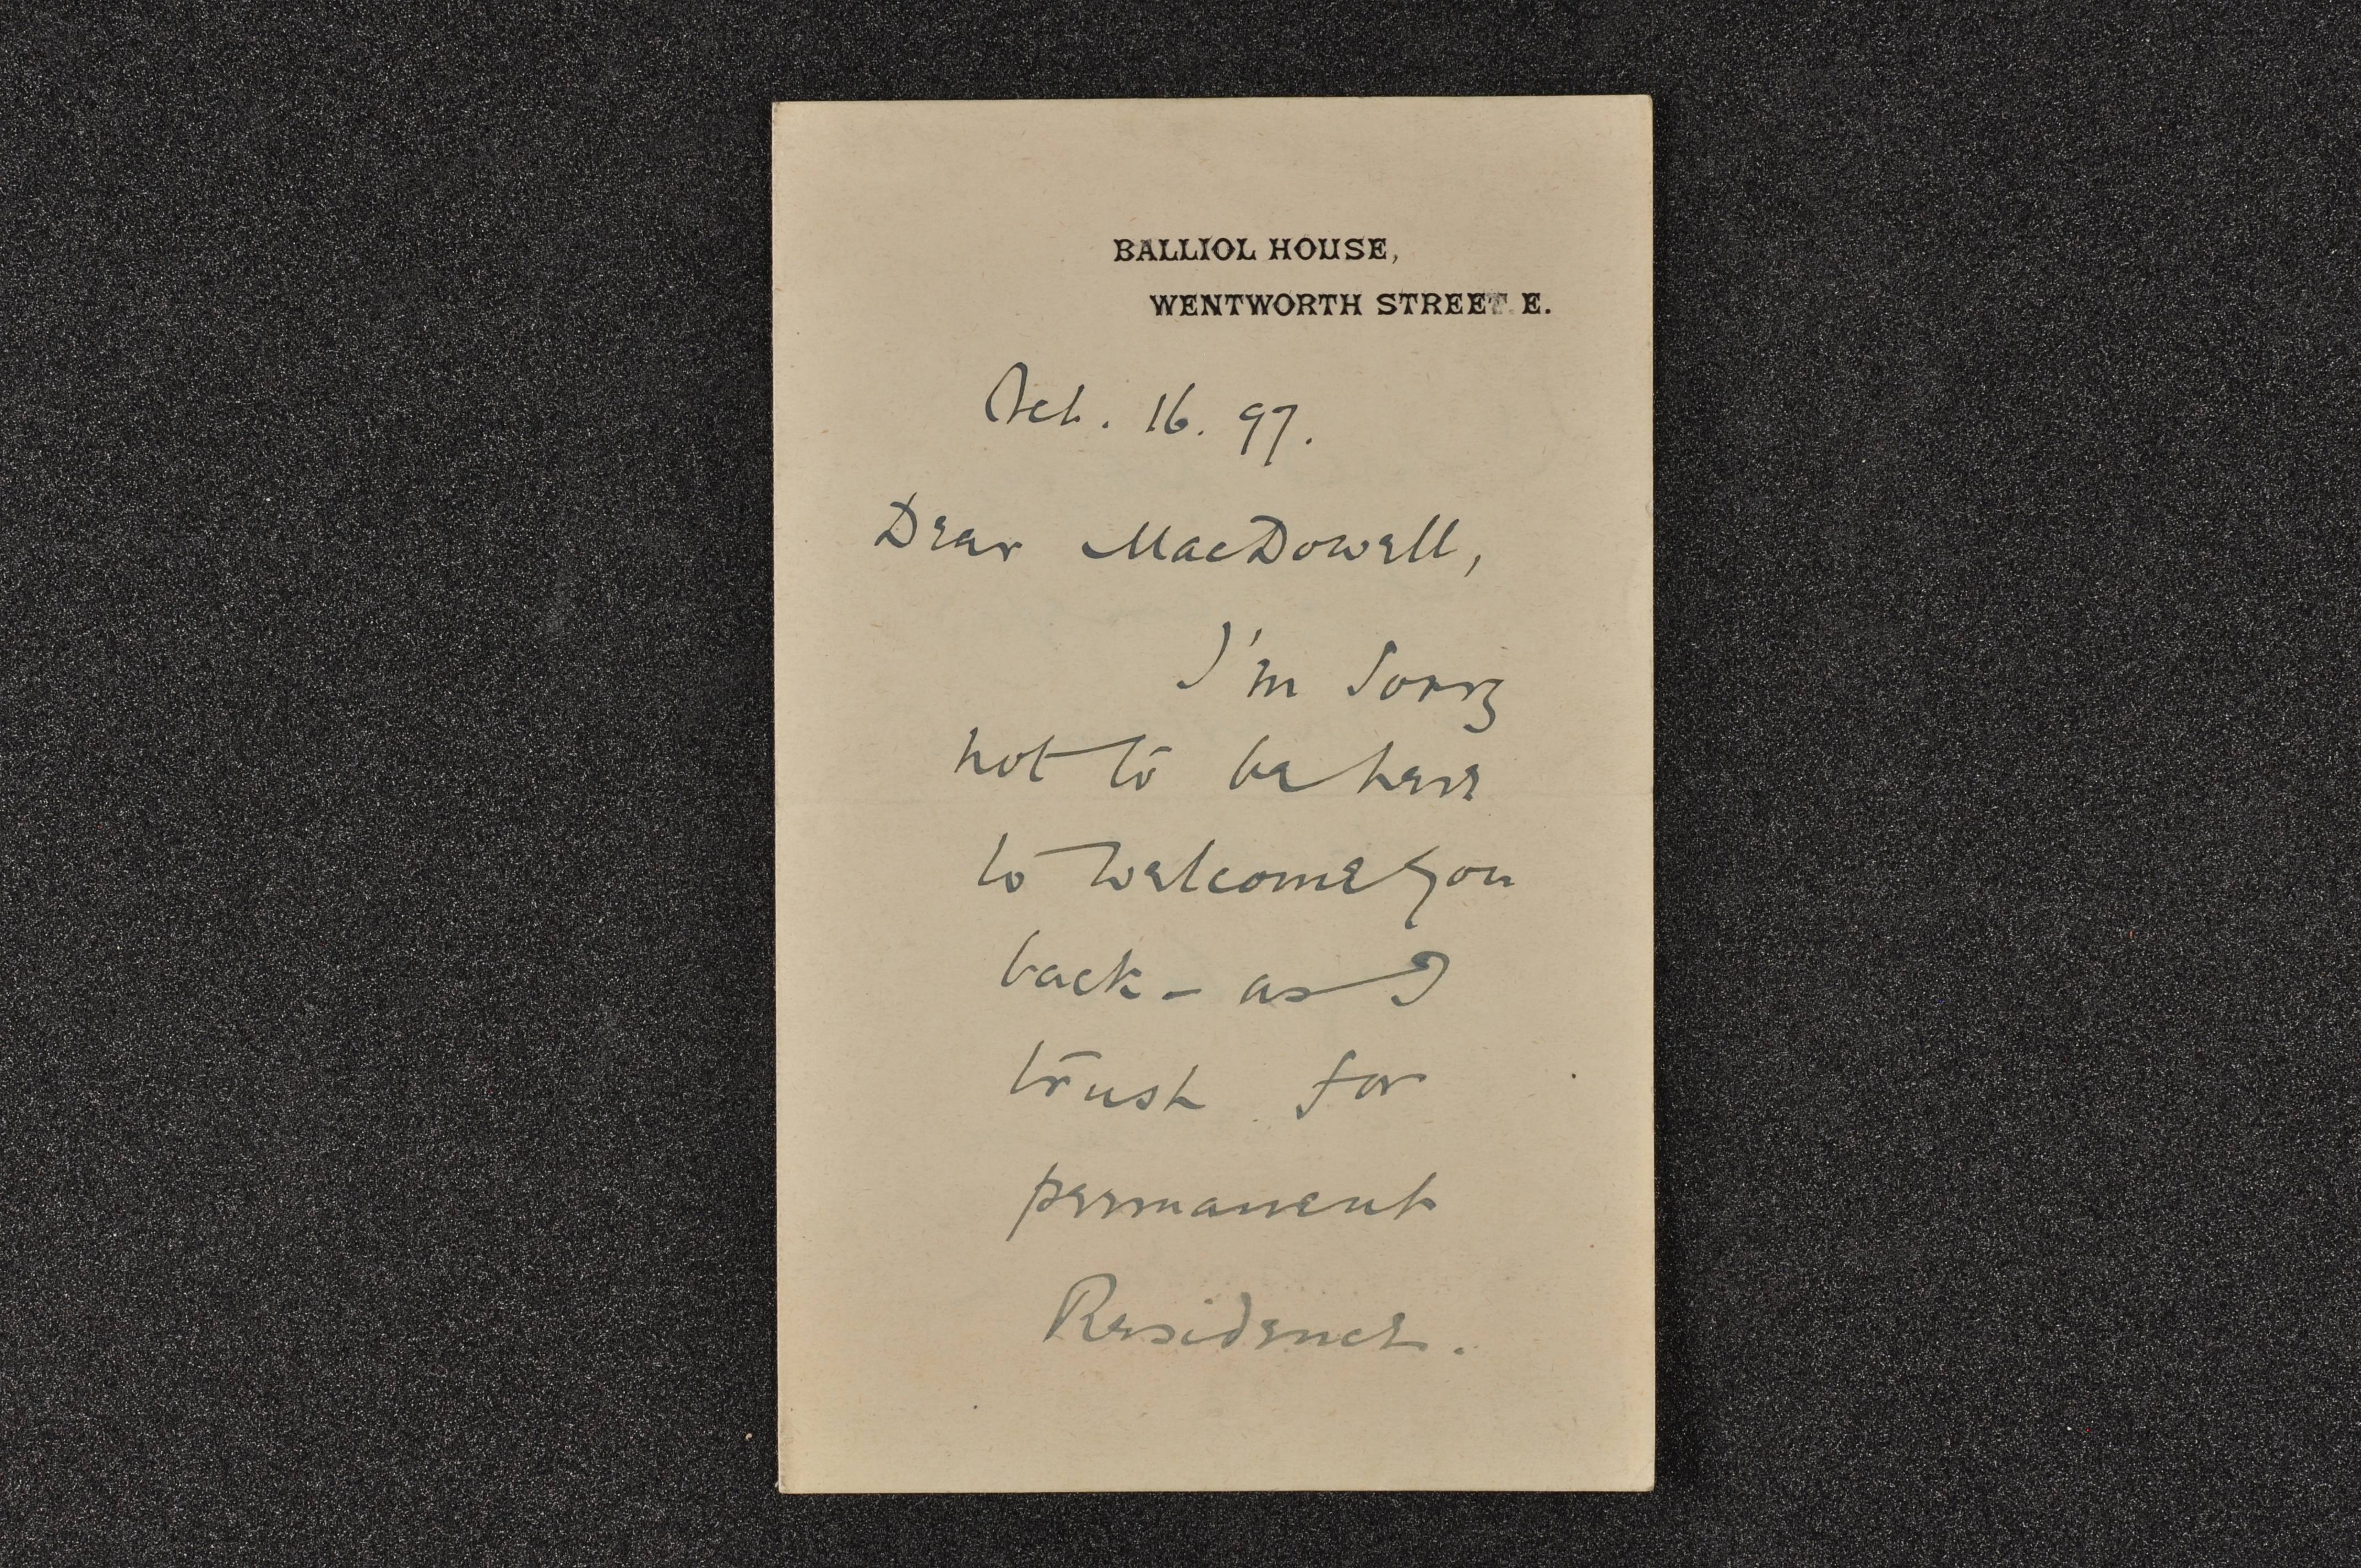 BALLIOL HOUSE,
WENTWORTH STREET. E.
Oct. 16. 97.
Dear MacDowell,
I'm sorry
not to be here
to welcome you
back - as I
trust for
permanent
Residence.